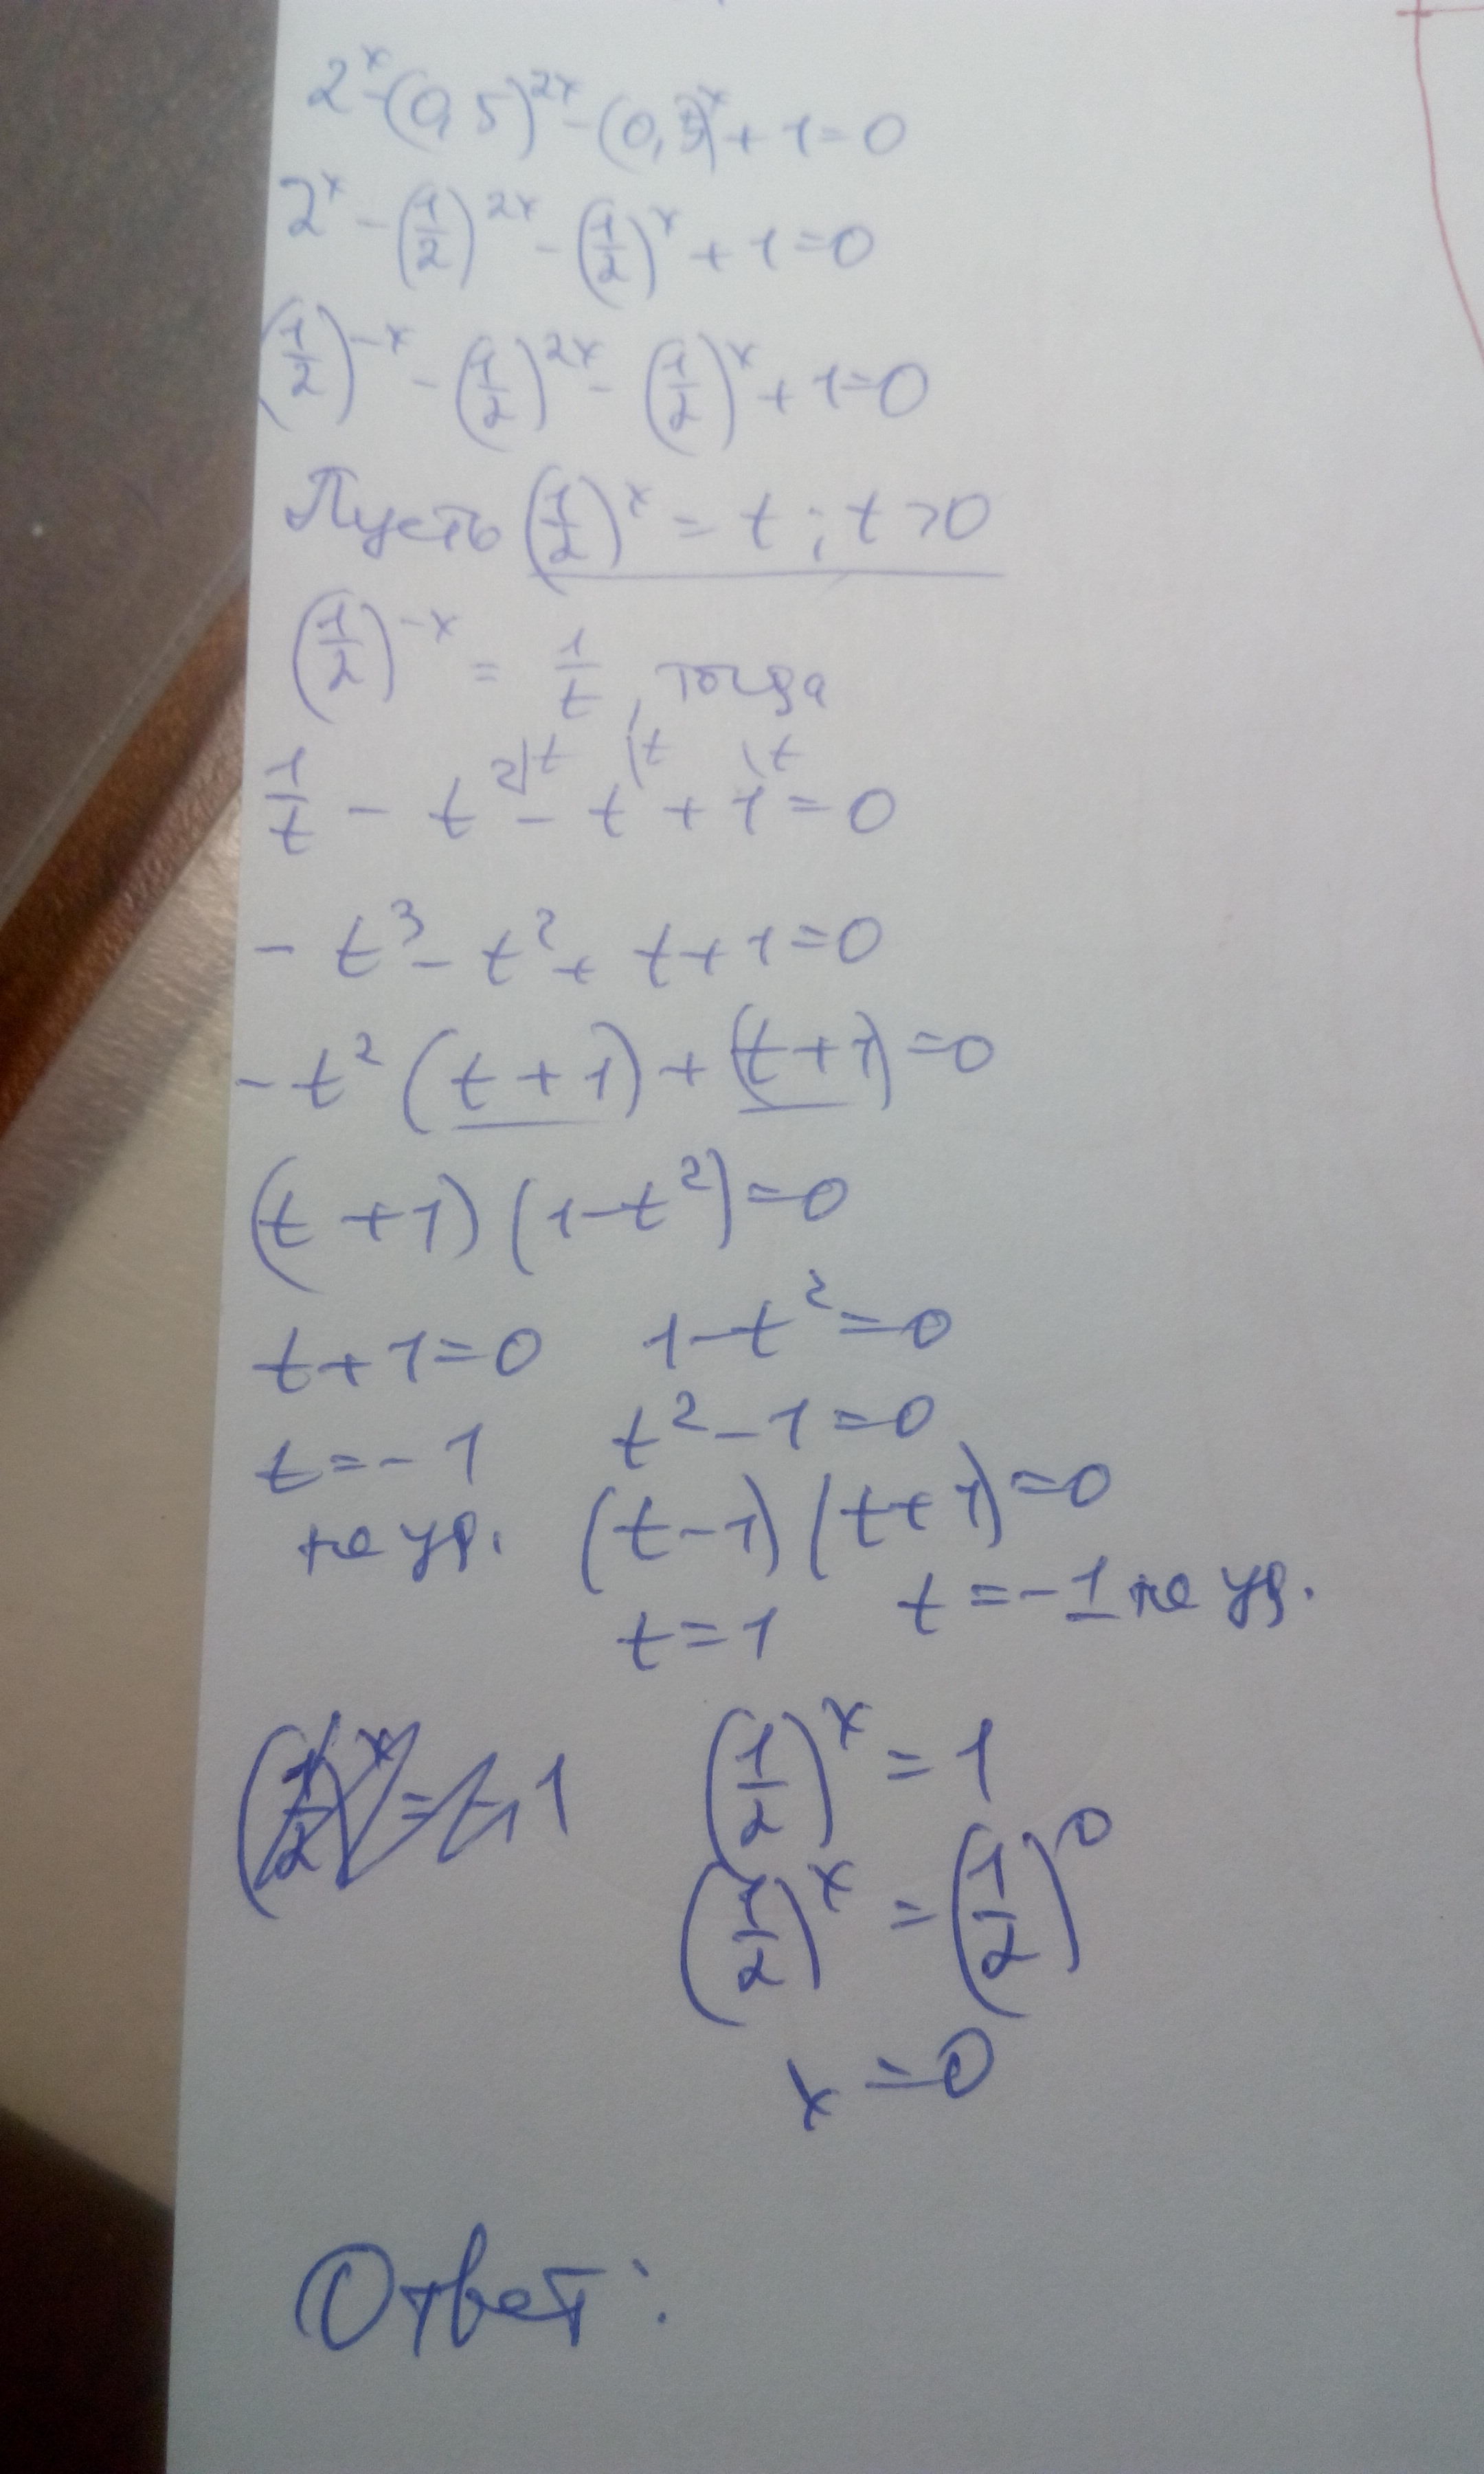 2^x - (0,5)^2x - (0,5)^x + 1 = 0
2^x - (1/2)^2x - (1/2)^x + 1 = 0
(1/2)^-x - (1/2)^2x - (1/2)^x + 1 = 0
Пусть (1/2)^x = t ; t > 0
(1/2)^-x = 1/t, тогда
1/t - t^2 \t - t \t + 1 \t = 0
- t^3 - t^2 + t + 1 = 0
- t^2 (t + 1) + (t + 1) = 0
(t + 1) (1 - t^2) = 0
t + 1 = 0 1 - t^2 = 0
t = -1 t^2 - 1 = 0
не ур. (t - 1) (t + 1) = 0
t = 1 t = -1 не ур.
(1/2)^x = 1
(1/2)^x = (1/2)^0
x = 0
Ответ: